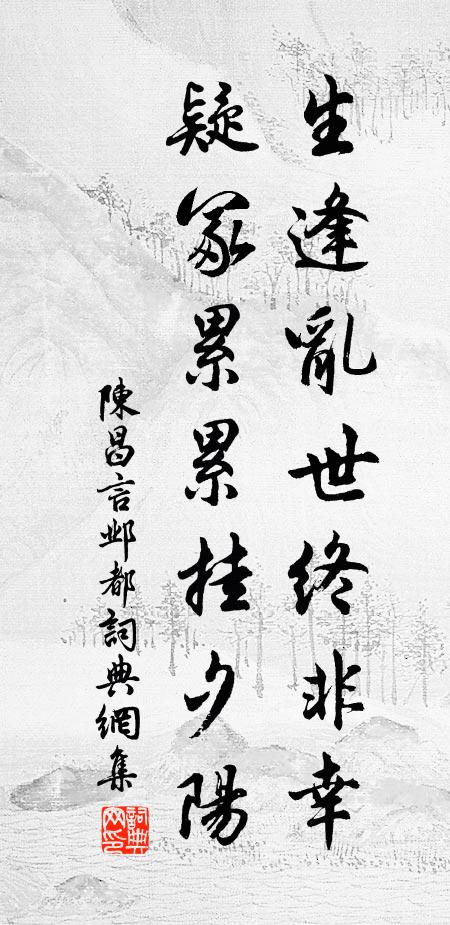 生逢亂世終非幸
疑冢累累挂夕陽
陳昌言邺都詞典網集
詞典網印